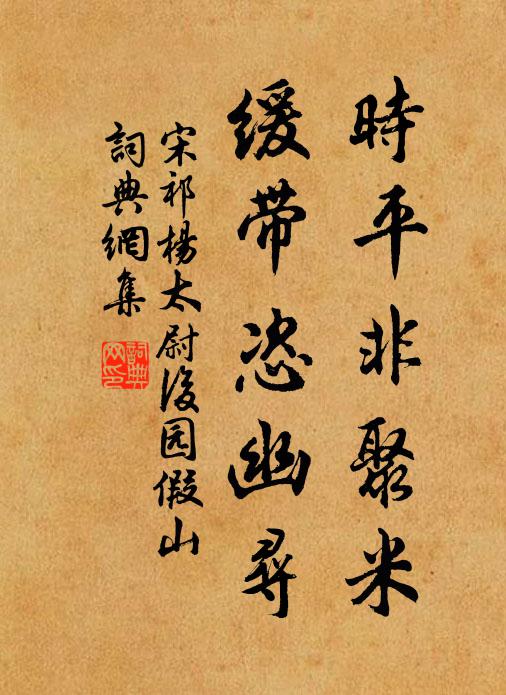 時平非聚米
缓带恣幽尋
宋祁楊太尉後园假山
詞典網集
詞典網印